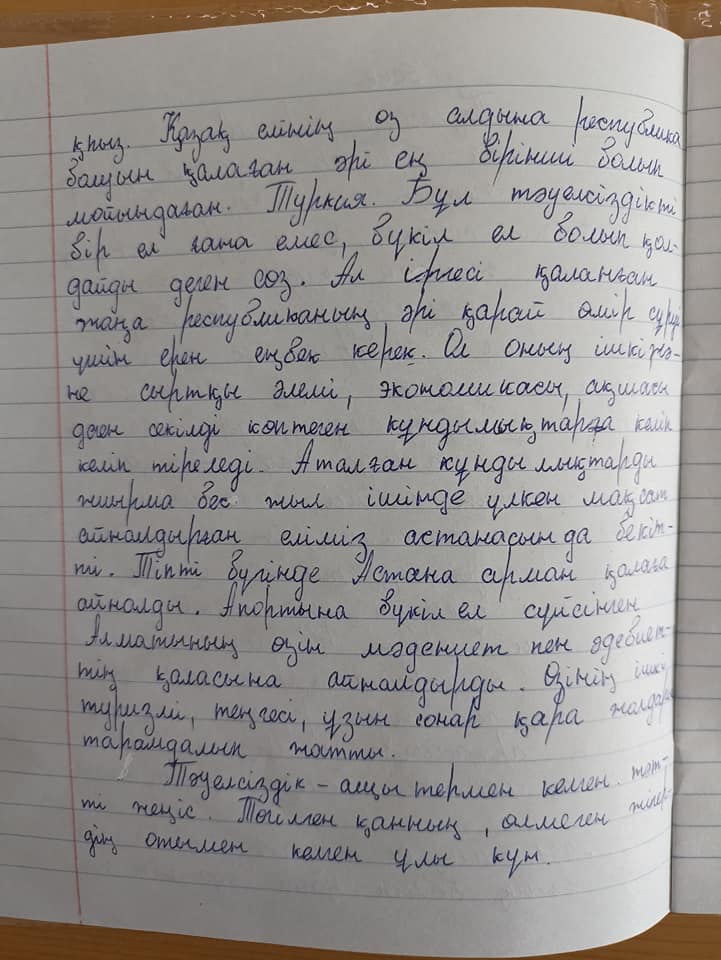 қпыз. Қазақ елінің оз алдына республика
болуын қалаған әрі ең бірінші болып
мойындаған. Туркия. Бұл тәуелсіздікті
бір ел ғана емес, бүкіл ел болып қол-
дайды деген соз. Ал іргесі қаланған
жаңа республиканың әрі қарай өмір сүруі
үшін ерен еңбек керек. Ол оның ішкі жә-
не сыртқы әлемі, экономикасы, ақшасы
деген секілді көптеген құндылықтарға келіп
келіп тіреледі. Аталған құндылықтарды
жиырма бес жыл ішінде үлкен мақсат
айналдырған еліміз астанасында бекіт-
ті. Тіпті бүгінде Астана арман қалаға
айналды. Апортына бүкіл ел сүйсінген
Алматының өзін мәдениет пен әдебиет-
тің қаласына айналдырды. Өзінің ішкі
туризмі, теңгесі, ұзын сонар қара жолдары
тарамдалып жатты.
Тәуелсіздік – ащы термен келген тәт-
ті жеңіс. Төгілген қанның, өлмеген жігер-
дің отымен келген ұлы күн.